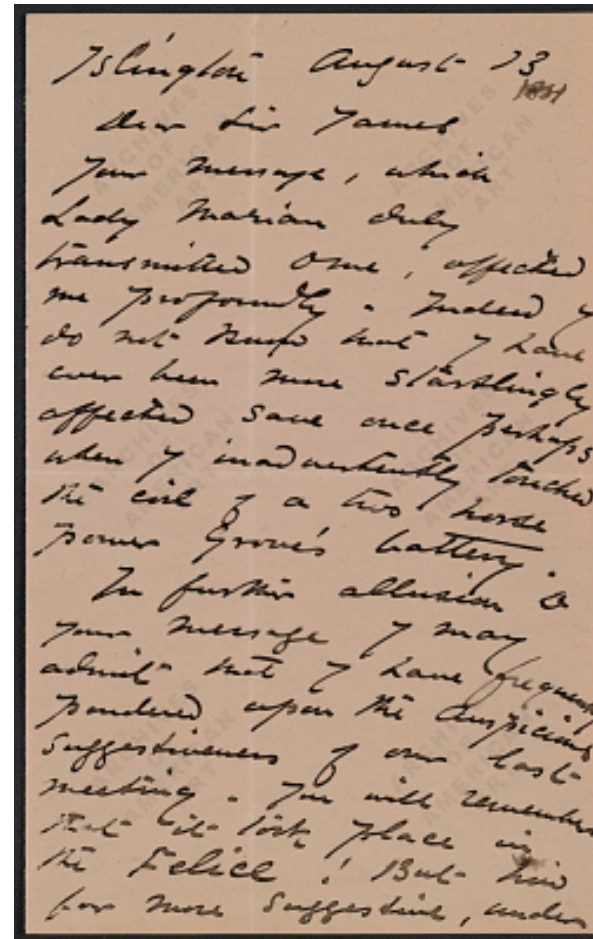 Islington August 13
1881
Dear Sir James
Your message, which
Lady Marian duly
transmitted me, affected
me profoundly. Indeed I
do not know that I have
ever been more startlingly
affected save once perhaps
when I inadvertently touched
the coil of a two horse
power Grove's battery.
In further allusion to
your message I may
admit that I have frequently
pondered upon the auspicious
suggestiveness of our last
meeting. You will remember
that it took place in
the Felice! But how
far more suggestive, under
ARCHIVES
OF
AMERICAN
ART